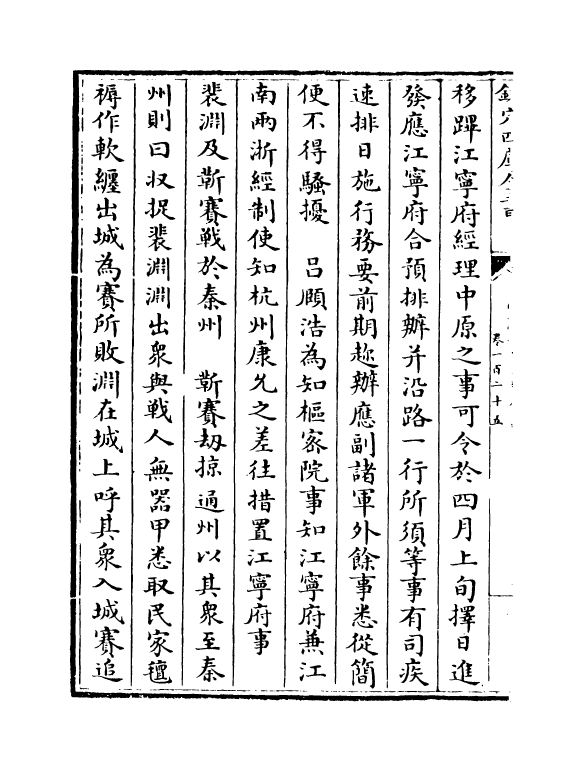 欽定四庫全書
卷一百二十五
移蹕江寧府經理中原之事可令於四月上旬擇日進
發應江寧府合預排辦并沿路一行所須等事有司疾
速排日施行務要前期趂辦應副諸軍外餘事悉從簡
便不得騷擾　呂頤浩為知樞密院事知江寧府兼江
南兩浙經制使知杭州康允之差往措置江寧府事
裴淵及靳賽戰於秦州　靳賽刼掠通州以其衆至秦
州則曰収捉裴淵淵出衆與戰人無器甲悉取民家氊
褥作軟纏出城為賽所敗淵在城上呼其衆入城賽追